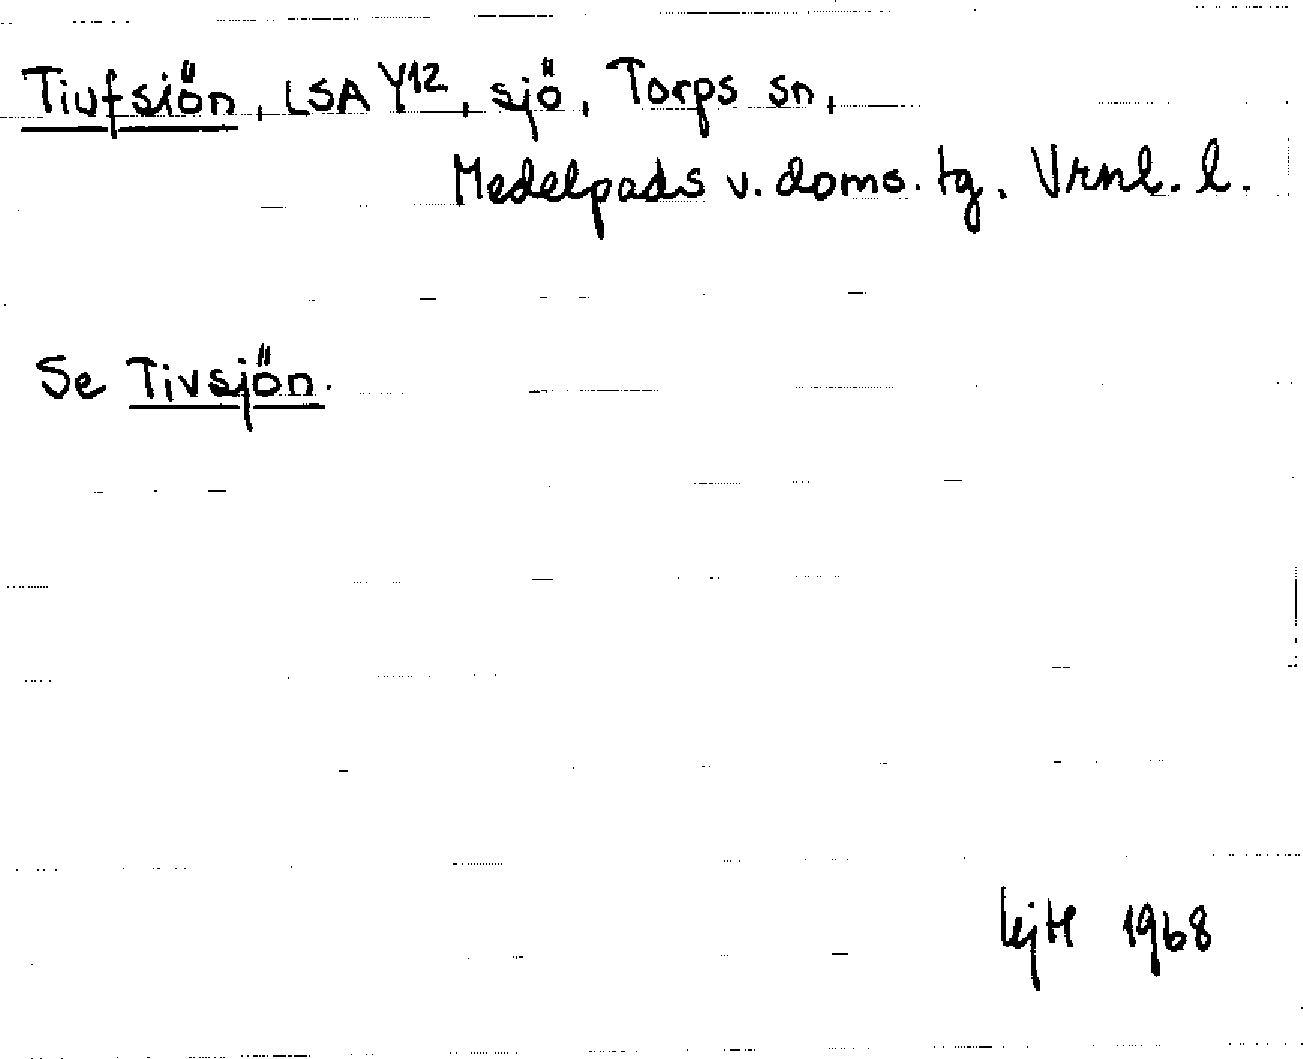 Tiufsiön, LSA Y12, sjö, Torps sn,
Medelpads v. doms. tg. Vrnl. l.
Se Tivsjön.
1968